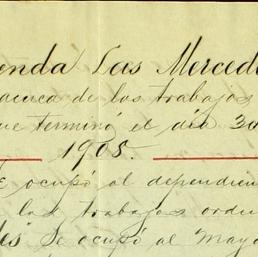 enda Las Mercede
acerca de los trabajos
ue terminó el día 30
1905.
E ocupó al dependien
los trabajos ordi
es Se ocupó al Mayo